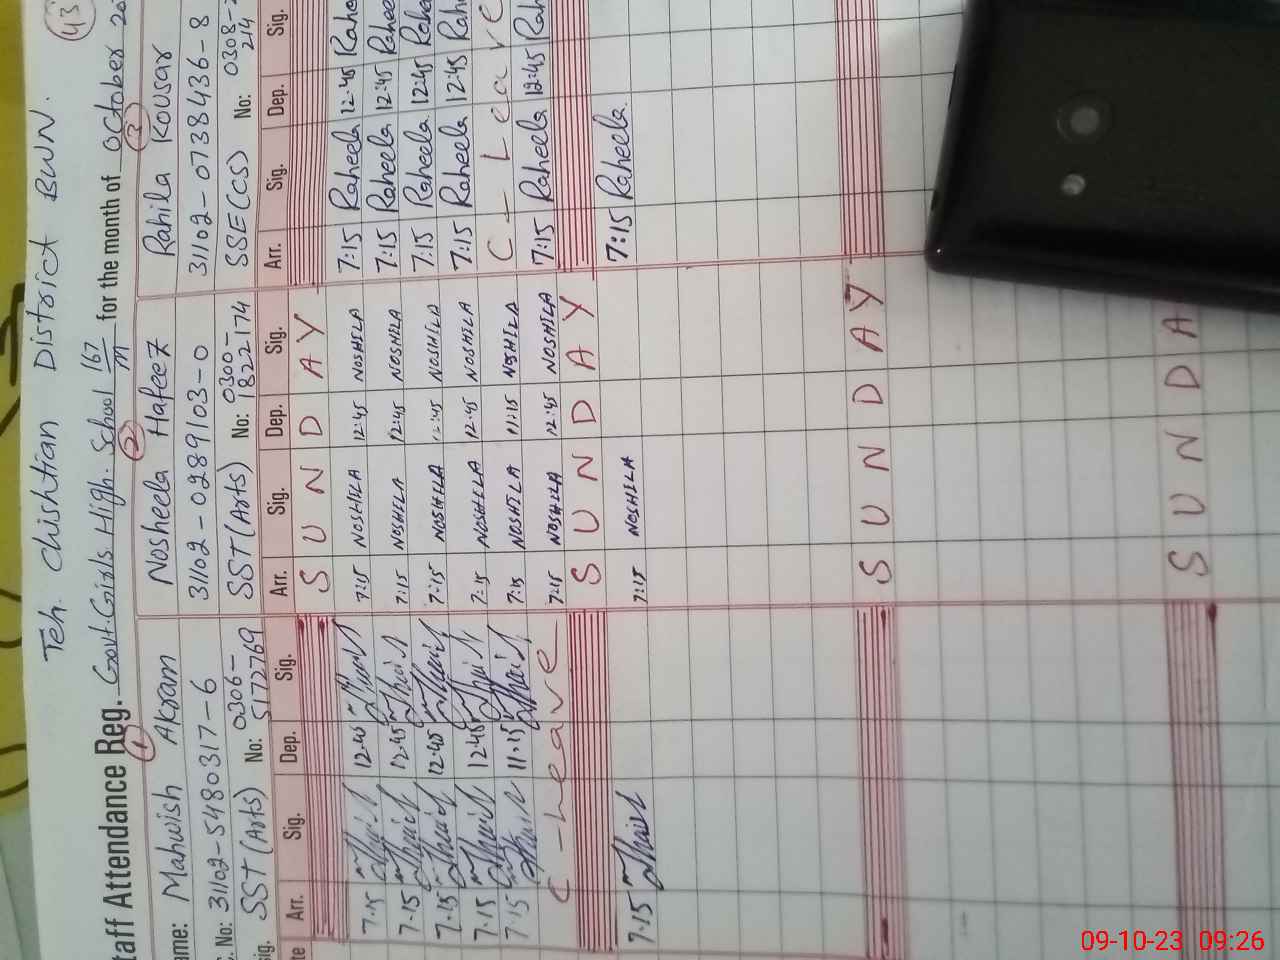 43
Teh. Chishtian District BWN.
taff Attendance Reg. Govt. Girls. High. School 167/M for the month of October 20
1 2 3
ame: Mahwish Akram Nosheela Hafeez Rahila Kousar
. No: 31102-5480317-6 31102-0289103-0 31102-0738436-8
sig. SST (Arts) No: 0306-5172769 SST (Arts) No: 0300-1822174 SSE(CS) No: 0308-214
te Arr. Sig. Dep. Sig. Arr. Sig. Dep. Sig. Arr. Sig. Dep. Sig.
S U N D A Y
7:15 12:45 7:15 NOSHILA 12:45 NOSHILA 7:15 Raheela 12:45 Rahee
7:15 12:45 7:15 NOSHILA 12:45 NOSHILA 7:15 Raheela 12:45 Rahee
7:15 12:45 7:15 NOSHILA 12:45 NOSHILA 7:15 Raheela 12:45 Rahe
7:15 12:45 7:15 NOSHILA 12:45 NOSHILA 7:15 Raheela 12:45 Rah
7:15 11:15 7:15 NOSHILA 11:15 NOSHILA C - Leave
C - Leave 7:15 NOSHILA 12:45 NOSHILA 7:15 Raheela 12:45 Rah
S U N D A Y
7:15 7:15 NOSHILA 7:15 Raheela
S U N D A Y
S U N D A
09-10-23 09:26